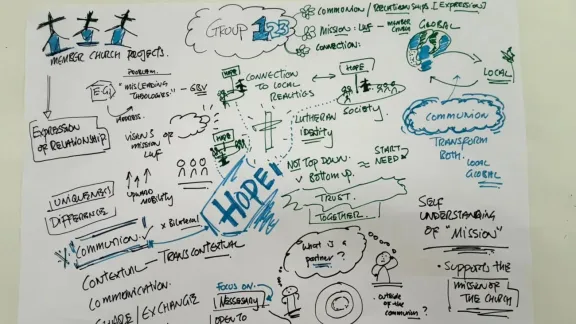 GROUP 123
COMMUNION / RELATIONSHIPS [EXPRESSION]
MISSION: LWF - MEMBER CHURCH
GLOBAL
CONNECTION:
MEMBER CHURCH PROJECTS.
PROBLEM.
E-G:
"MISLEADING
THEOLOGIES" - GBV
ADDRESS.
EXPRESSION
OF RELATIONSHIP
VISION &
MISSION
LWF
HOPE
CONNECTION
TO LOCAL
REALITIES
HOPE
SOCIETY
HOPE
LUTHERAN
Identity
LOCAL
COMMUNION
TRANSFORM
BOTH.
LOCAL
GLOBAL
NOT TOP DOWN.
✓ Bottom up.
≈ START
NEED
TRUST.
TOGETHER.
UNIQUENESS
DIFFERENCE
UPWARD
MOBILITY
HOPE!
COMMUNION ✓ × Bilateral
CONTEXTUAL - TRANSCONTEXTUAL
COMMUNICATION.
SHARE / EXCHANGE
What is a
partner?
FOCUS ON.
NECESSARY
OPEN TO
outside of
the communion?
SELF
UNDERSTANDING
OF "MISSION"
• SUPPORTS THE
MISSION OF
THE CHURCH